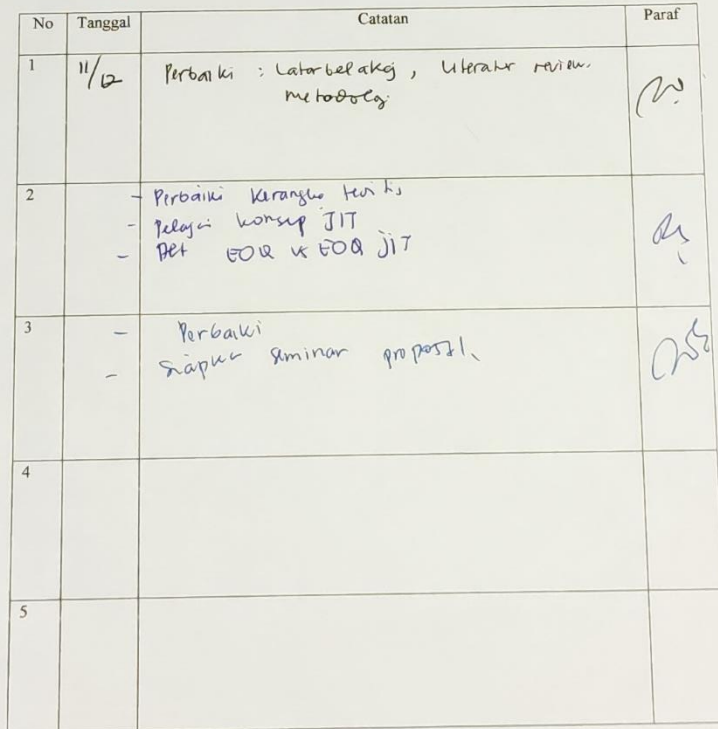 No Tanggal Catatan Paraf
1 11/12 Perbaiki : Latarbelakg, Literatur review.
metodolgi
2 - Perbaiki Kerangka teoritis
- Pelajari konsep JIT
- EOQ vs EOQ JIT
3 - Perbaiki
- Siapkan seminar proposal.
4
5